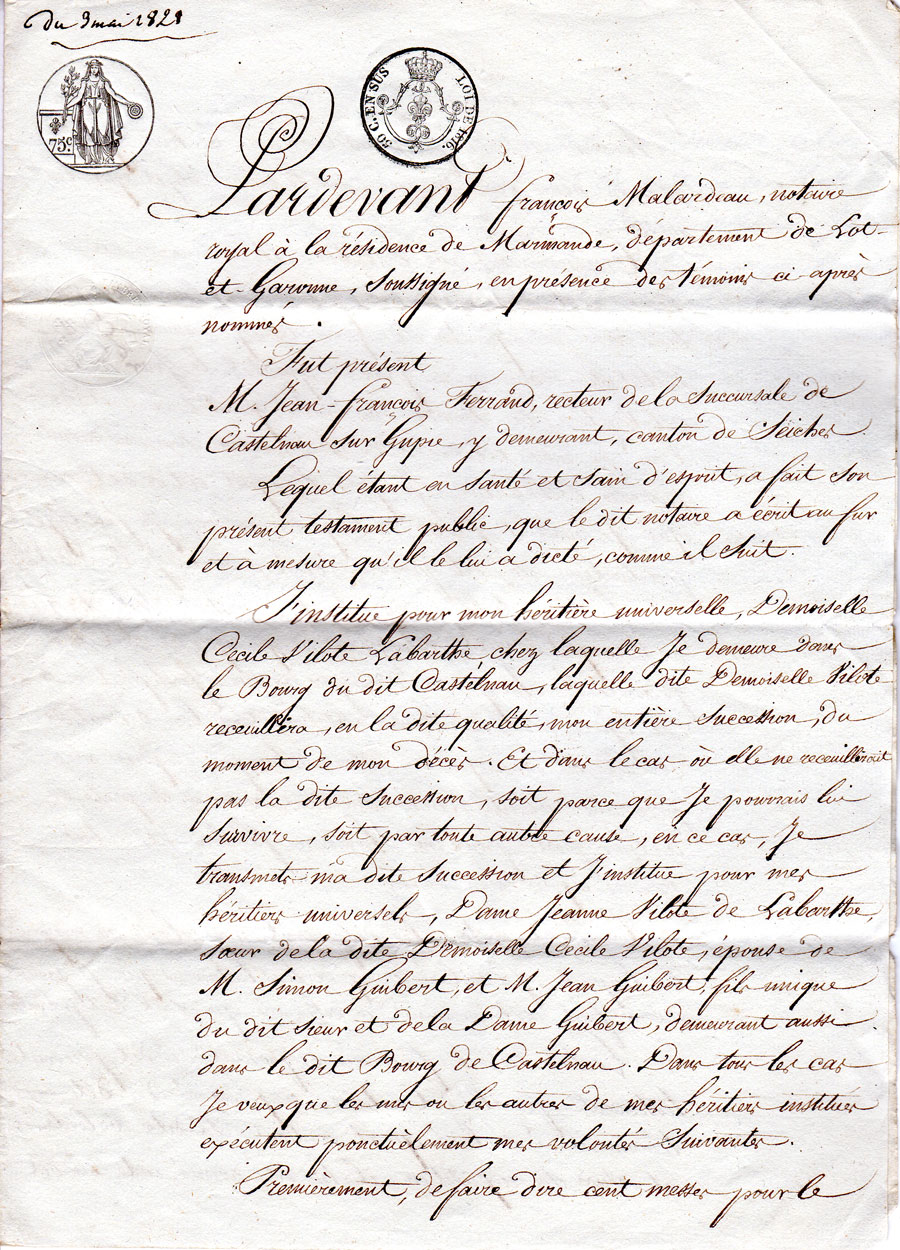 du 9 mai 1821
75 c.
50 C. EN SUS LOI DE 1816.
Pardevant françois Malardeau, notaire
royal à la résidence de Marmande, département de Lot-
et-Garonne, soussigné, en présence des témoins ci après
nommés.
Fut présent
M. Jean-françois Ferrand, recteur de la Succursale de
Castelnau sur Gupie, y demeurant, canton de Seiches.
Lequel étant en santé et sain d'esprit, a fait son
présent testament public, que le dit notaire a écrit au fur
et à mesure qu'il le lui a dicté, comme il suit.
J'institue pour mon héritière universelle, Demoiselle
Cécile Vilote Labarthe chez laquelle Je demeure dans
le Bourg du dit Castelnau, laquelle dite Demoiselle Vilote
receuillira, en la dite qualité, mon entière succession, du
moment de mon décès. Et dans le cas où elle ne receuillirait
pas la dite succession, soit parce que Je pourrais lui
survivre, soit par toute autre cause, en ce cas, Je
transmets ma dite succession et J'institue pour mes
héritiers universels, Dame Jeanne Vilote de Labarthe,
sœur de la dite Demoiselle Cécile Vilote, épouse de
M. Simon Guibert, et M. Jean Guibert, fils unique
du dit sieur et de la Dame Guibert, demeurant aussi
dans le dit Bourg de Castelnau. Dans tous les cas
Je veux que les uns ou les autres de mes héritiers institués
exécutent ponctuèlement mes volontés suivantes.
Premièrement, de faire dire cent messes pour le